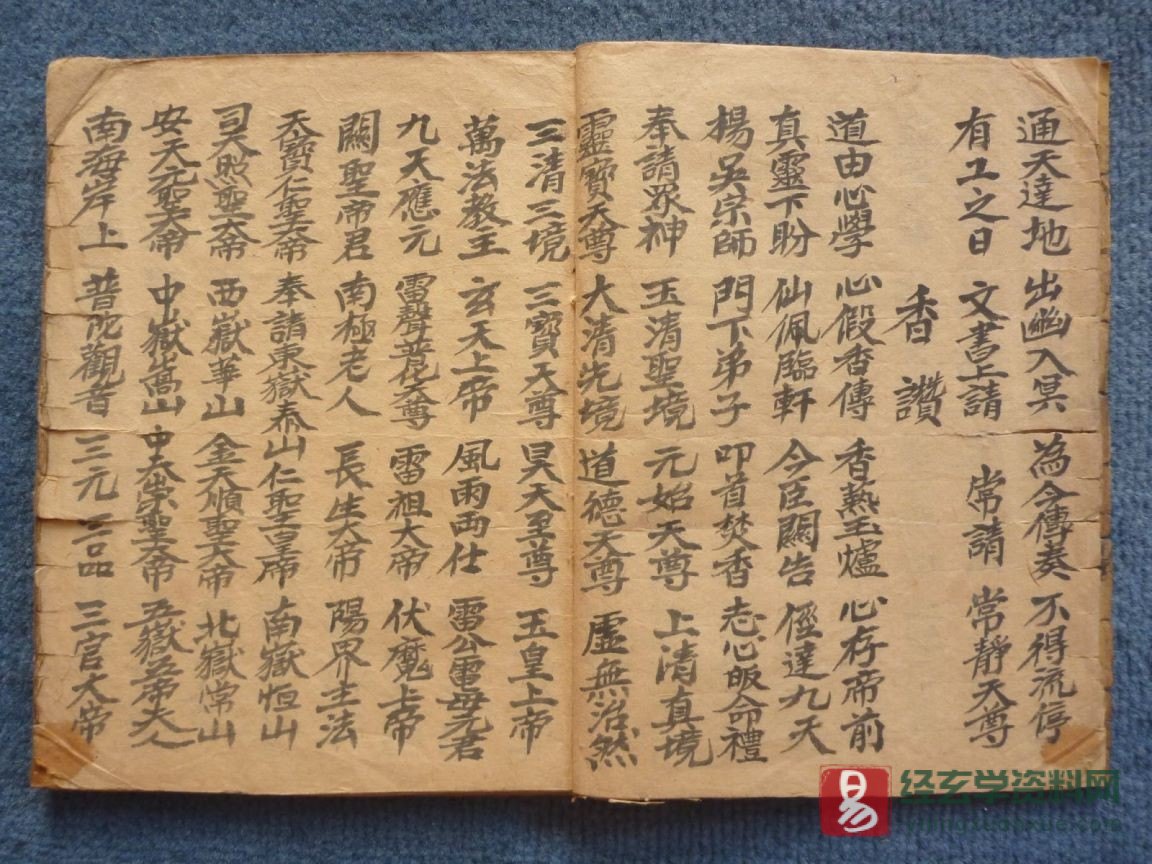 通天達地 出幽入冥 為今傳奏 不得流停
有工之日 文書上請 常請 常靜天尊
香讚
道由心學 心假香傳 香熱玉爐 心存帝前
真靈下盼 仙佩臨軒 今臣關告 徑達九天
楊吳宗師 門下弟子 叩首焚香 志心皈命禮
奉請眾神 玉清聖境 元始天尊 上清真境
靈寶天尊 大清先境 道德天尊 虛無治然
三清三境 三寶天尊 昊天至尊 玉皇上帝
萬法教主 玄天上帝 風雨雨仕 雷公電母元君
九天應元 雷聲普化天尊 雷祖大帝 伏魔上帝
關聖帝君 南極老人 長生大帝 陽界主法
天寶仁聖大帝 奉請東嶽泰山 仁聖皇帝 南嶽恒山
司天照聖大帝 西嶽華山 金天順聖大帝 北嶽常山
安天元聖大帝 中嶽嵩山 中天崇聖大帝 五嶽五帝夫人
南海岸上 普陀觀音 三元三品 三官大帝
易
经玄学资料网